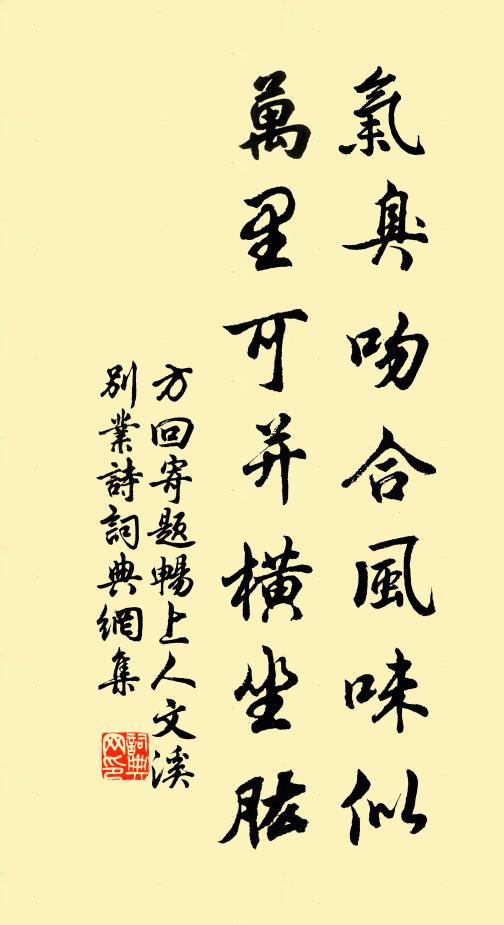 氣臭吻合風味似
萬里可并橫坐肱
方回寄題暢上人文溪
別業詩詞典網集
詞典
网印